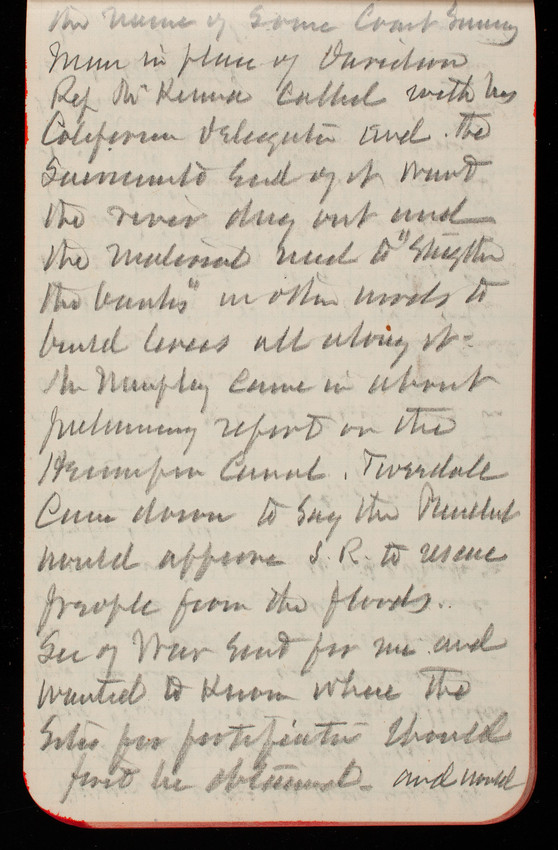 the name of Some Coast Survey
man in place of Davidson
Rep McKenna Called with his
California delegate and the
Sacramento end of it want
the river dug out and
the material used to "Stregthn
the banks" in other words to
build levees all along it-
Mr Murphy Came in about
preliminary report on the
Hennepin Canal. Tweedale
Came down to Say the President
would approve J. R. to rescue
people from the floods.
Sec of War Sent for me and
wanted to Know where the
Sites for fortification Should
first be obtained- and would